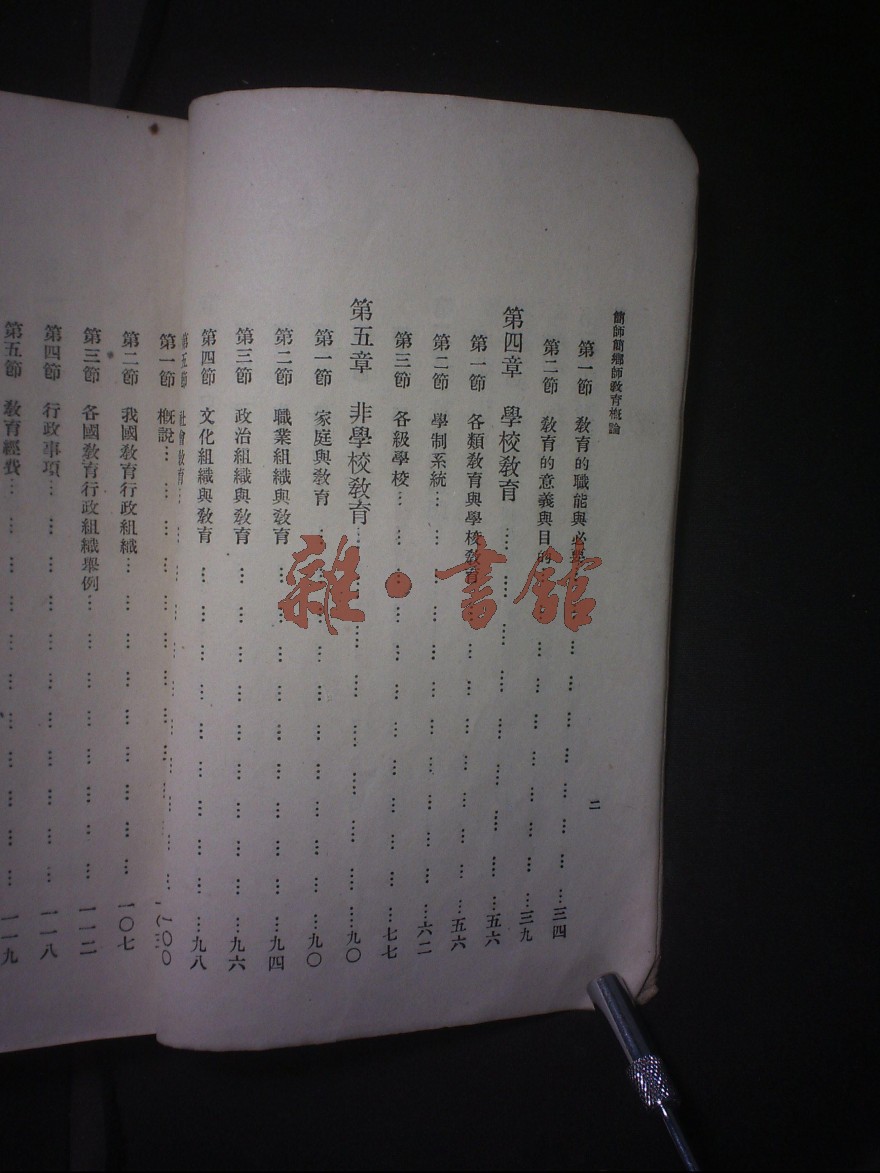 簡師簡鄉師教育概論
第一節 教育的職能與必要……三四
第二節 教育的意義與目的……三九
第四章 學校教育……五六
第一節 各類教育與學校教育……五六
第二節 學制系統……六二
第三節 各級學校……七七
第五章 非學校教育……九〇
第一節 家庭與教育……九〇
第二節 職業組織與教育……九四
第三節 政治組織與教育……九六
第四節 文化組織與教育……九八
第五節 社會教育……一〇〇
二
第一節 概說……
第二節 我國教育行政組織……一〇七
第三節 各國教育行政組織舉例……一一二
第四節 行政事項……一一八
第五節 教育經費……一一九
雜·書館